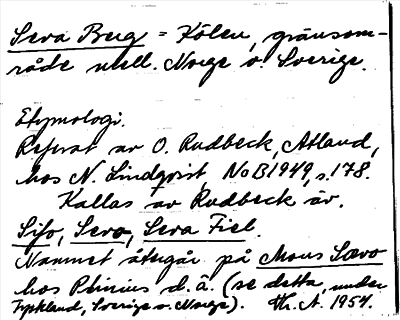 Seva Berg = Kölen, gränsom-
råde mell. Norge o. Sverige.
Etymologi.
Referat av O. Rudbeck, Atland,
hos N. Lindqvist, NoB 1949, s. 178.
Kallas av Rudbeck äv.
Sifo, Sevo, Seva Fiel.
Namnet återgår på Mons Sævo
hos Plinius d.ä. (se detta, under
Tyskland, Sverige o. Norge). Th. A. 1954.